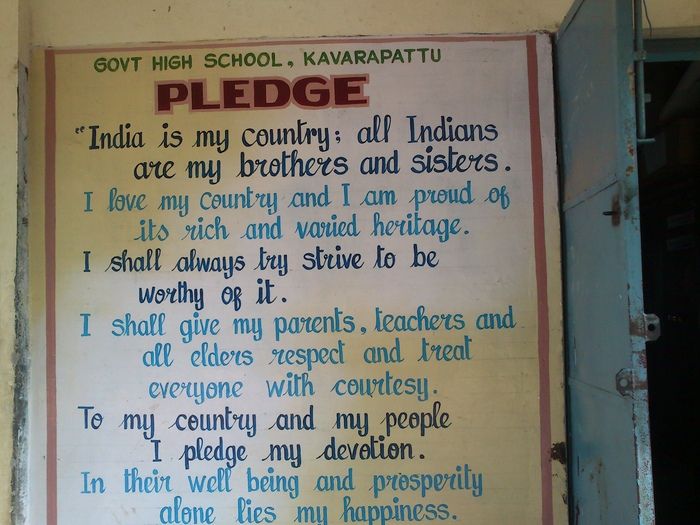 GOVT HIGH SCHOOL, KAVARAPATTU
PLEDGE
"India is my country; all Indians
are my brothers and sisters.
I love my country and I am proud of
its rich and varied heritage.
I shall always try strive to be
worthy of it.
I shall give my parents, teachers and
all elders respect and treat
everyone with courtesy.
To my country and my people
I pledge my devotion.
In their well being and prosperity
alone lies my happiness.